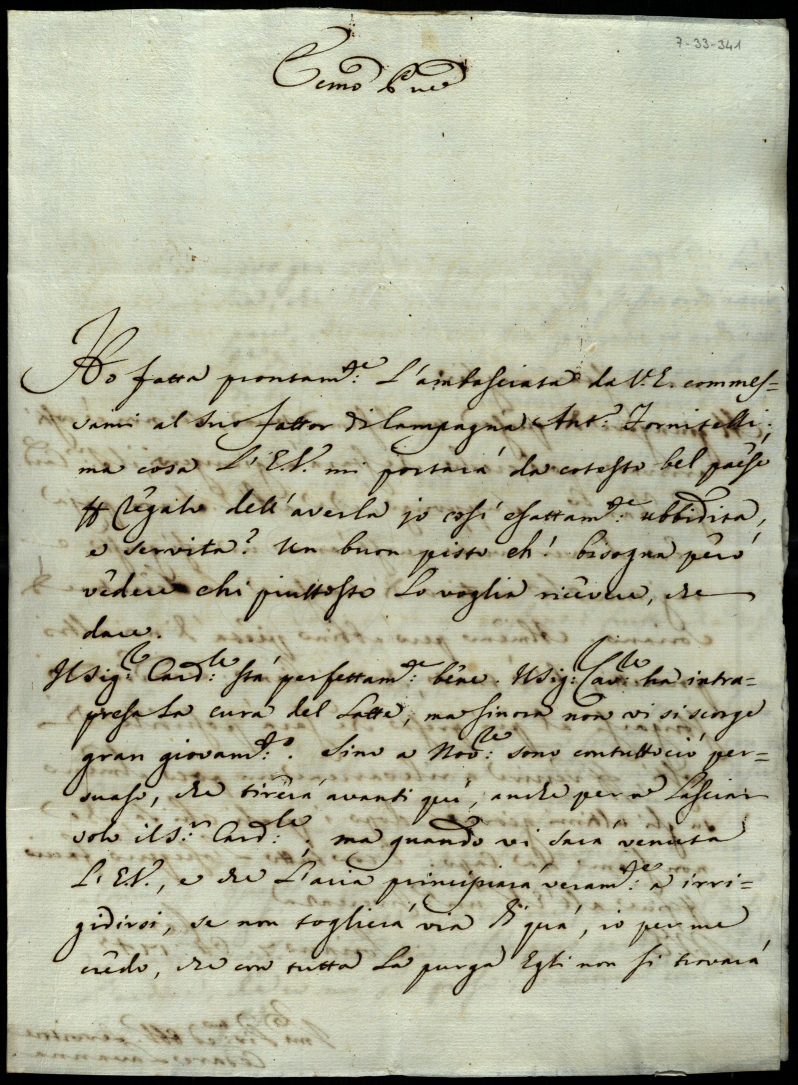 7-33-341
Ecmo Pne
Ho fatta prontamte: L'ambasciata da V. E. commes=
sami al suo fattor di Campagna Anto: Fornitelli;
ma cosa L'E.V. mi portará da cotesto bel paése
regalo dell'averla jo cosí esattamte: ubbidita,
e servita? Un buon pisto eh! bisogna peró
vedere chi piuttosto Lo voglia ricevere, che
dare.
Il Sigr: Cardle: stá perfettamte: bene. Il Sigr: Cavle: ha intra=
presa La cura del Latte, ma sinora non vi si scorge
gran giovamto:. Sino a Nobre: sono contuttoció per=
suaso, che tirerá avanti quí, anche per nò Lasciar
solo il Sr: Cardle:; ma quando vi sará venuta
L'E.V., e che L'aria principiará veramte: a irri=
gidirsi, se non toglierá via di quá, io per me
credo, che con tutta La purga Egli non si trovará